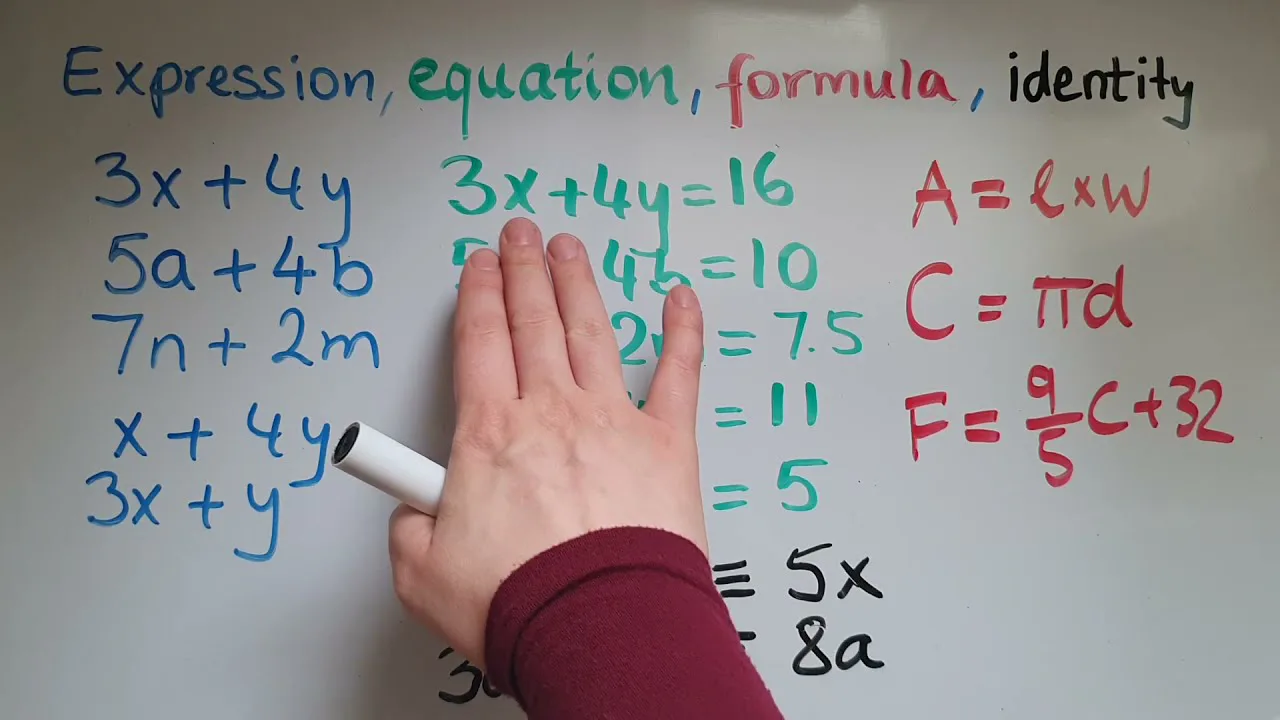 Expression, equation, formula, identity
3x + 4y
5a + 4b
7n + 2m
x + 4y
3x + y
3x + 4y = 16
4b = 10
2m = 7.5
= 11
= 5
≡ 5x
≡ 8a
A = l × w
C = πd
F = 9/5 C + 32